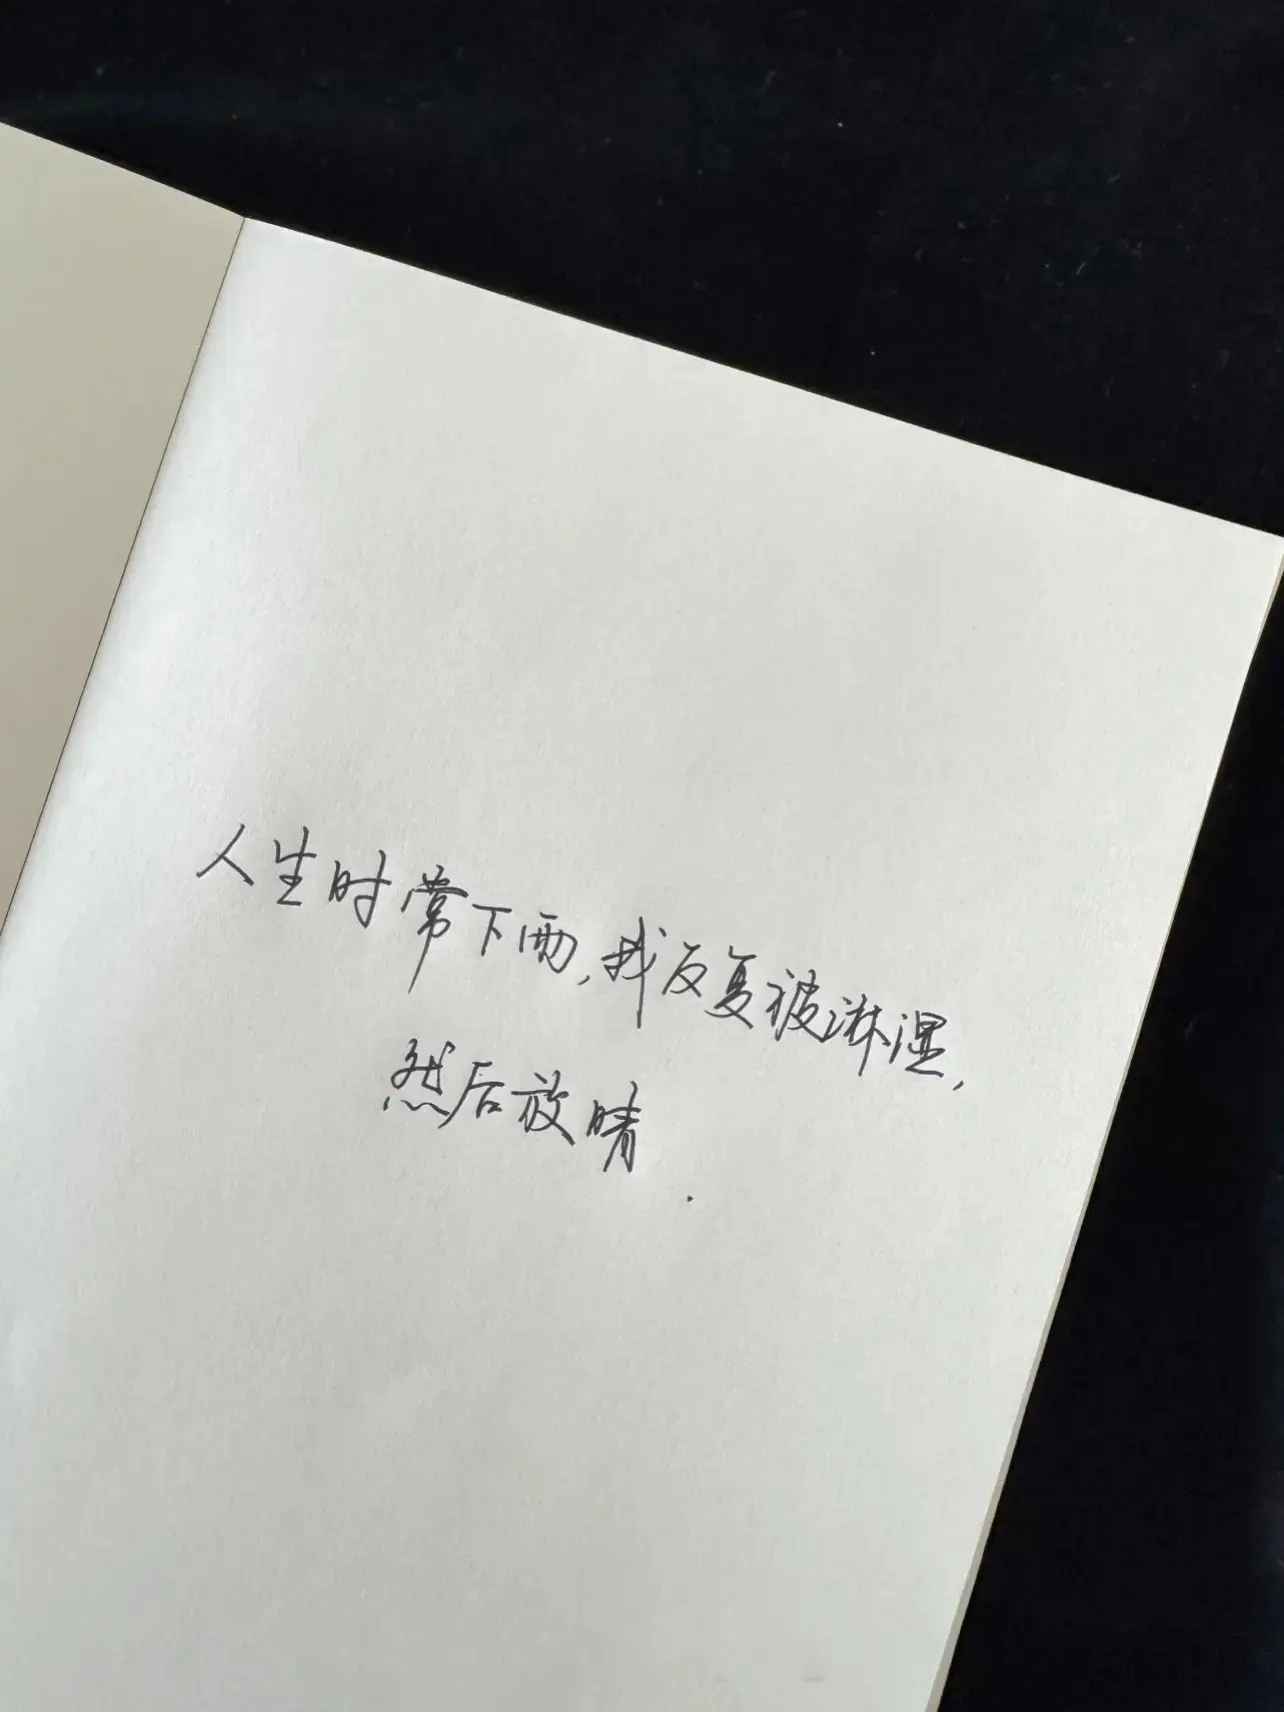 人生时常下雨,我反复被淋湿,
然后放晴.